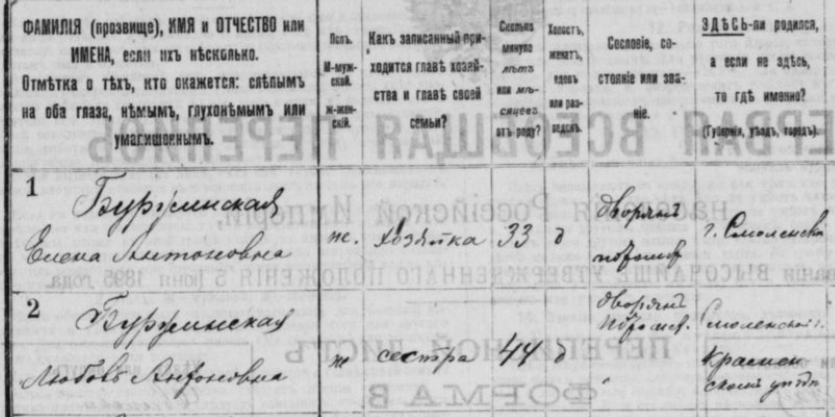 ФАМИЛІЯ (прозвище), ИМЯ и ОТЧЕСТВО или
ИМЕНА, если ихъ нѣсколько.
Отмѣтка о тѣхъ, кто окажется: слѣпымъ
на оба глаза, нѣмымъ, глухонѣмымъ или
умалишеннымъ.
Полъ.
М-муж-
ской.
ж-жен-
скій.
Какъ записанный при-
ходится главѣ хозяй-
ства и главѣ своей
семьи?
Сколько
минуло
лѣтъ
или мѣ-
сяцевъ
отъ роду?
Холостъ,
женатъ,
вдовъ
или раз-
ведёнъ.
Сословіе, со-
стояніе или зва-
ніе.
ЗДѢСЬ-ли родился,
а если не здѣсь,
то гдѣ именно?
(Губернія, уѣздъ, городъ).
ПЕРВАЯ ВСЕОБЩАЯ ПЕРЕПИСЬ
населенія Россійской Имперіи,
ВЫСОЧАЙШЕ УТВЕРЖДЕННАГО ПОЛОЖЕНІЯ 5 Іюня 1895 года.
ПЕРЕПИСНОЙ ЛИСТЪ
ФОРМА В.
1
Елена Антоновна ж. хозяйка 33 д г. Смоленскъ
2
Любовь Антоновна ж сестра 44 д